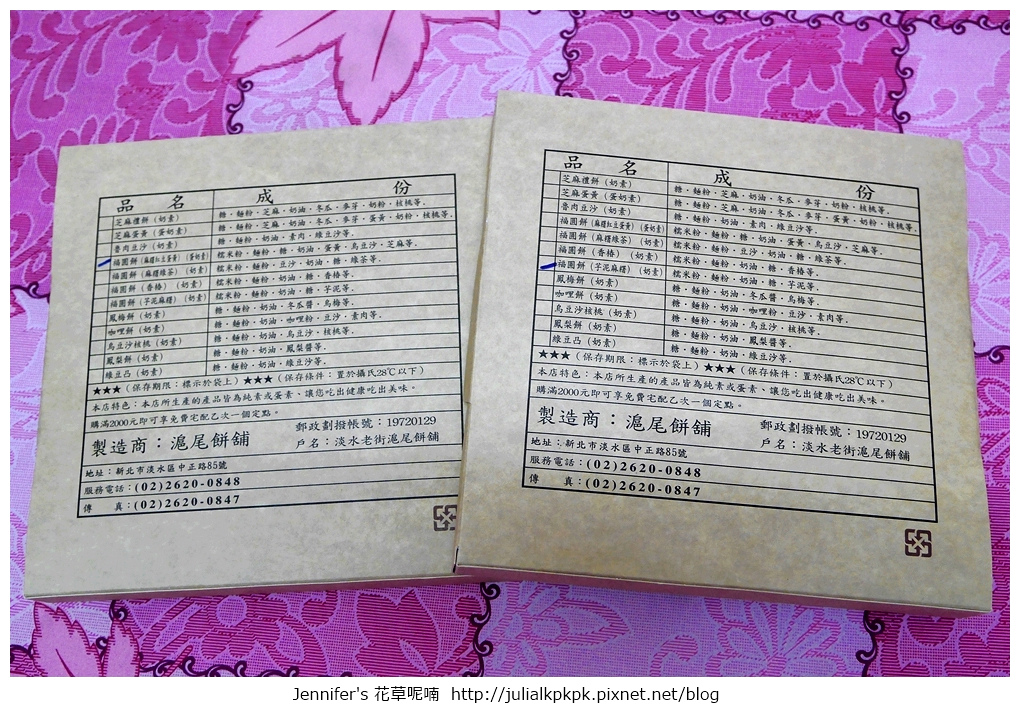 品 名 成 份
芝麻禮餅 (奶素) 糖．麵粉．芝麻．奶油．冬瓜．麥芽．奶粉．核桃等．
芝麻蛋黃 (蛋奶素) 糖．麵粉．芝麻．奶油．冬瓜．麥芽．蛋黃．奶粉．核桃等．
魯肉豆沙 (奶素) 糖．麵粉．奶油．素肉．綠豆沙等．
福圓餅 (麻糬紅豆蛋黃) (蛋奶素) 糯米粉．麵粉．糖．奶油．蛋黃．烏豆沙．芝麻等．
福圓餅 (麻糬綠茶) (奶素) 糯米粉．麵粉．豆沙．奶油．糖．綠茶等．
福圓餅 (香椿) (奶素) 糯米粉．麵粉．奶油．糖．香椿等．
福圓餅 (芋泥麻糬) (奶素) 糯米粉．麵粉．奶油．糖．芋泥等．
鳳梅餅 (奶素) 糖．麵粉．奶油．冬瓜醬．烏梅等．
咖哩餅 (奶素) 糖．麵粉．奶油．咖哩粉．豆沙．素肉等．
烏豆沙核桃 (奶素) 糖．麵粉．奶油．烏豆沙．核桃等．
鳳梨餅 (奶素) 糖．麵粉．奶油．鳳梨醬等．
綠豆凸 (奶素) 糖．麵粉．奶油．綠豆沙等．
★★★（保存期限：標示於袋上）★★★（保存條件：置於攝氏28℃以下）
本店特色：本店所生產的產品皆為純素或蛋素、讓您吃出健康吃出美味。
購滿2000元即可享免費宅配乙次一個定點。
製造商：滬尾餅舖 郵政劃撥帳號：19720129
戶名：淡水老街滬尾餅舖
地址：新北市淡水區中正路85號
服務電話：(02)2620-0848
傳 真：(02)2620-0847
品 名 成 份
芝麻禮餅 (奶素) 糖．麵粉．芝麻．奶油．冬瓜．麥芽．奶粉．核桃等．
芝麻蛋黃 (蛋奶素) 糖．麵粉．芝麻．奶油．冬瓜．麥芽．蛋黃．奶粉．核桃等．
魯肉豆沙 (奶素) 糖．麵粉．奶油．素肉．綠豆沙等．
福圓餅 (麻糬紅豆蛋黃) (蛋奶素) 糯米粉．麵粉．糖．奶油．蛋黃．烏豆沙．芝麻等．
福圓餅 (麻糬綠茶) (奶素) 糯米粉．麵粉．豆沙．奶油．糖．綠茶等．
福圓餅 (香椿) (奶素) 糯米粉．麵粉．奶油．糖．香椿等．
福圓餅 (芋泥麻糬) (奶素) 糯米粉．麵粉．奶油．糖．芋泥等．
鳳梅餅 (奶素) 糖．麵粉．奶油．冬瓜醬．烏梅等．
咖哩餅 (奶素) 糖．麵粉．奶油．咖哩粉．豆沙．素肉等．
烏豆沙核桃 (奶素) 糖．麵粉．奶油．烏豆沙．核桃等．
鳳梨餅 (奶素) 糖．麵粉．奶油．鳳梨醬等．
綠豆凸 (奶素) 糖．麵粉．奶油．綠豆沙等．
★★★（保存期限：標示於袋上）★★★（保存條件：置於攝氏28℃以下）
本店特色：本店所生產的產品皆為純素或蛋素、讓您吃出健康吃出美味。
購滿2000元即可享免費宅配乙次一個定點。
製造商：滬尾餅舖 郵政劃撥帳號：19720129
戶名：淡水老街滬尾餅舖
地址：新北市淡水區中正路85號
服務電話：(02)2620-0848
傳 真：(02)2620-0847
Jennifer's 花草呢喃 http://julialkpkpk.pixnet.net/blog